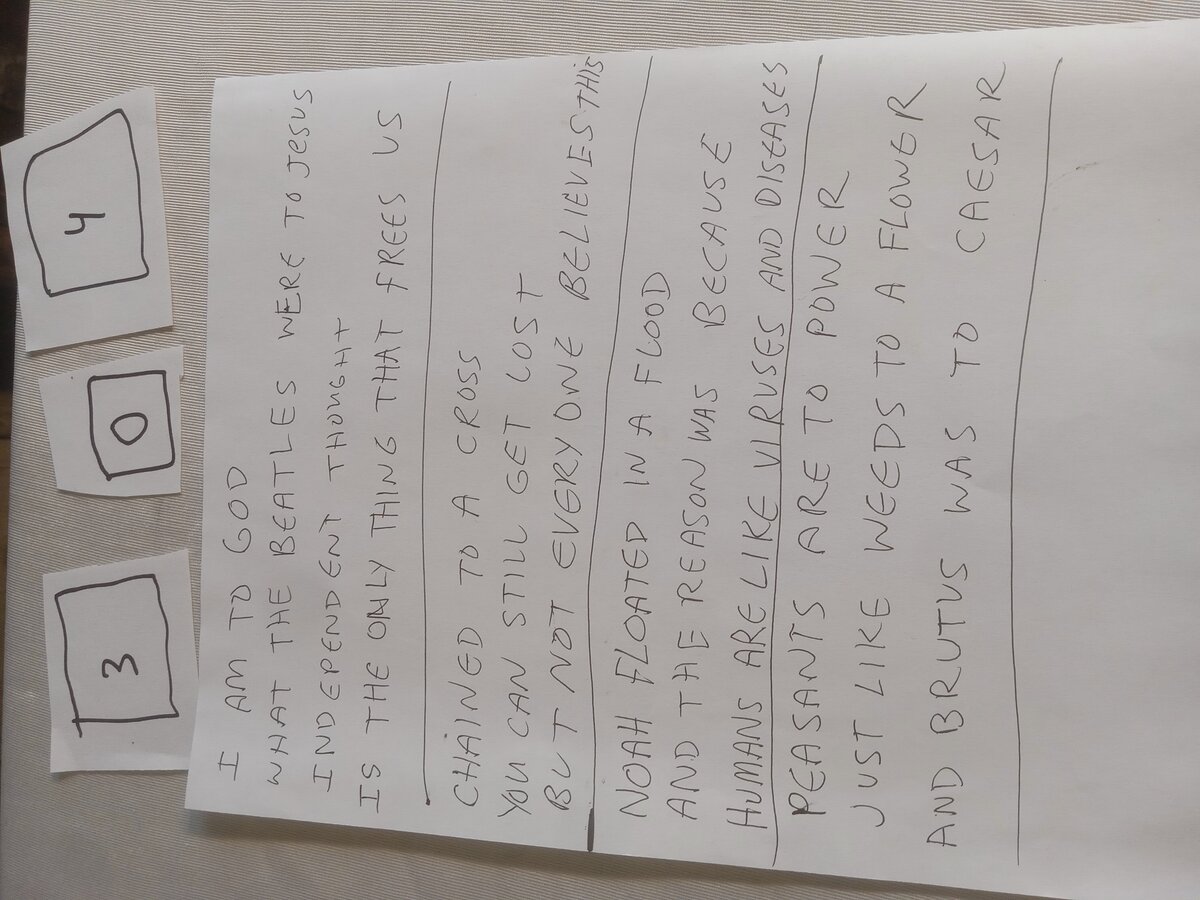 3
0
4
I AM TO GOD
WHAT THE BEATLES WERE TO JESUS
INDEPENDENT THOUGHT
IS THE ONLY THING THAT FREES US
CHAINED TO A CROSS
YOU CAN STILL GET LOST
BUT NOT EVERYONE BELIEVES THIS
NOAH FLOATED IN A FLOOD
AND THE REASON WAS BECAUSE
HUMANS ARE LIKE VIRUSES AND DISEASES
PEASANTS ARE TO POWER
JUST LIKE WEEDS TO A FLOWER
AND BRUTUS WAS TO CAESAR